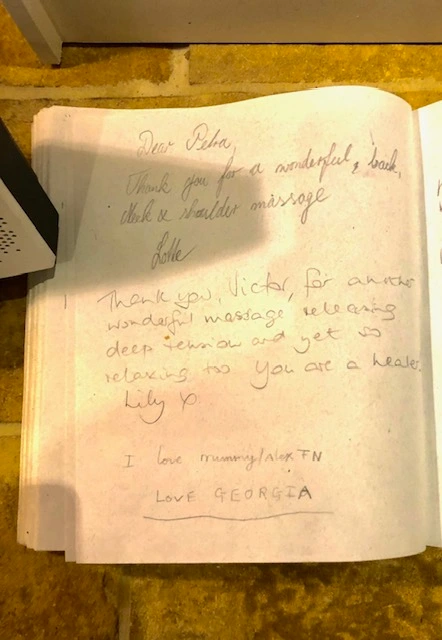 Dear Petra,
Thank you for a wonderful, back,
Neck & shoulder massage
Lotte
Thank you, Victor, for another
wonderful massage releasing
deep tension and yet so
relaxing too You are a healer.
Lily x
I love mummy/Alex FN
LOVE GEORGIA